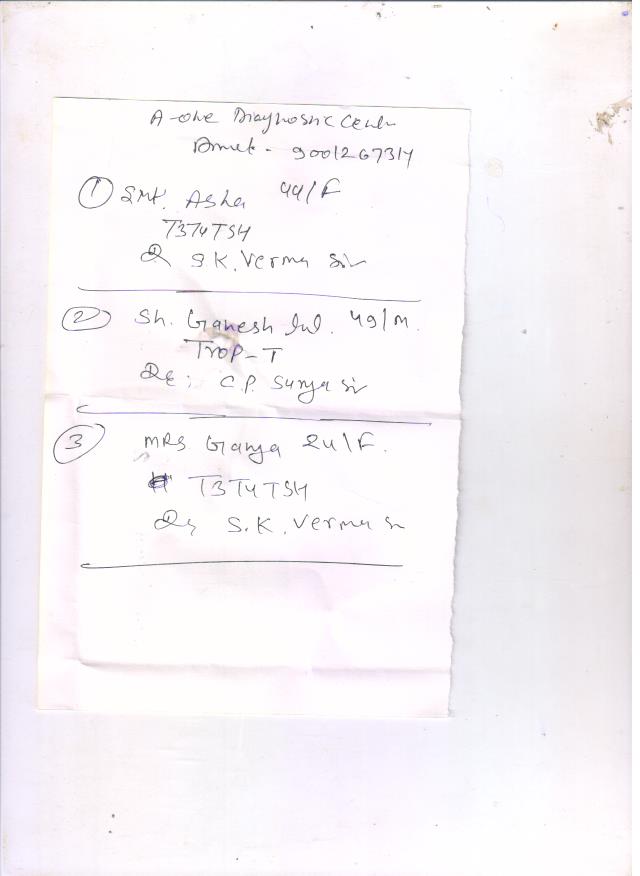 A-one Diagnostic Centre
Amet - 9001267314
① SMt. Asha 44/F
T3T4TSH
Dr S.K. Verma Sir
② Sh. Ganesh lal. 49/M.
Trop-T
Dr. C.P. Surya sir
③ MRS. Ganga 24/F.
T3T4TSH
Dr S.K. Verma Sr